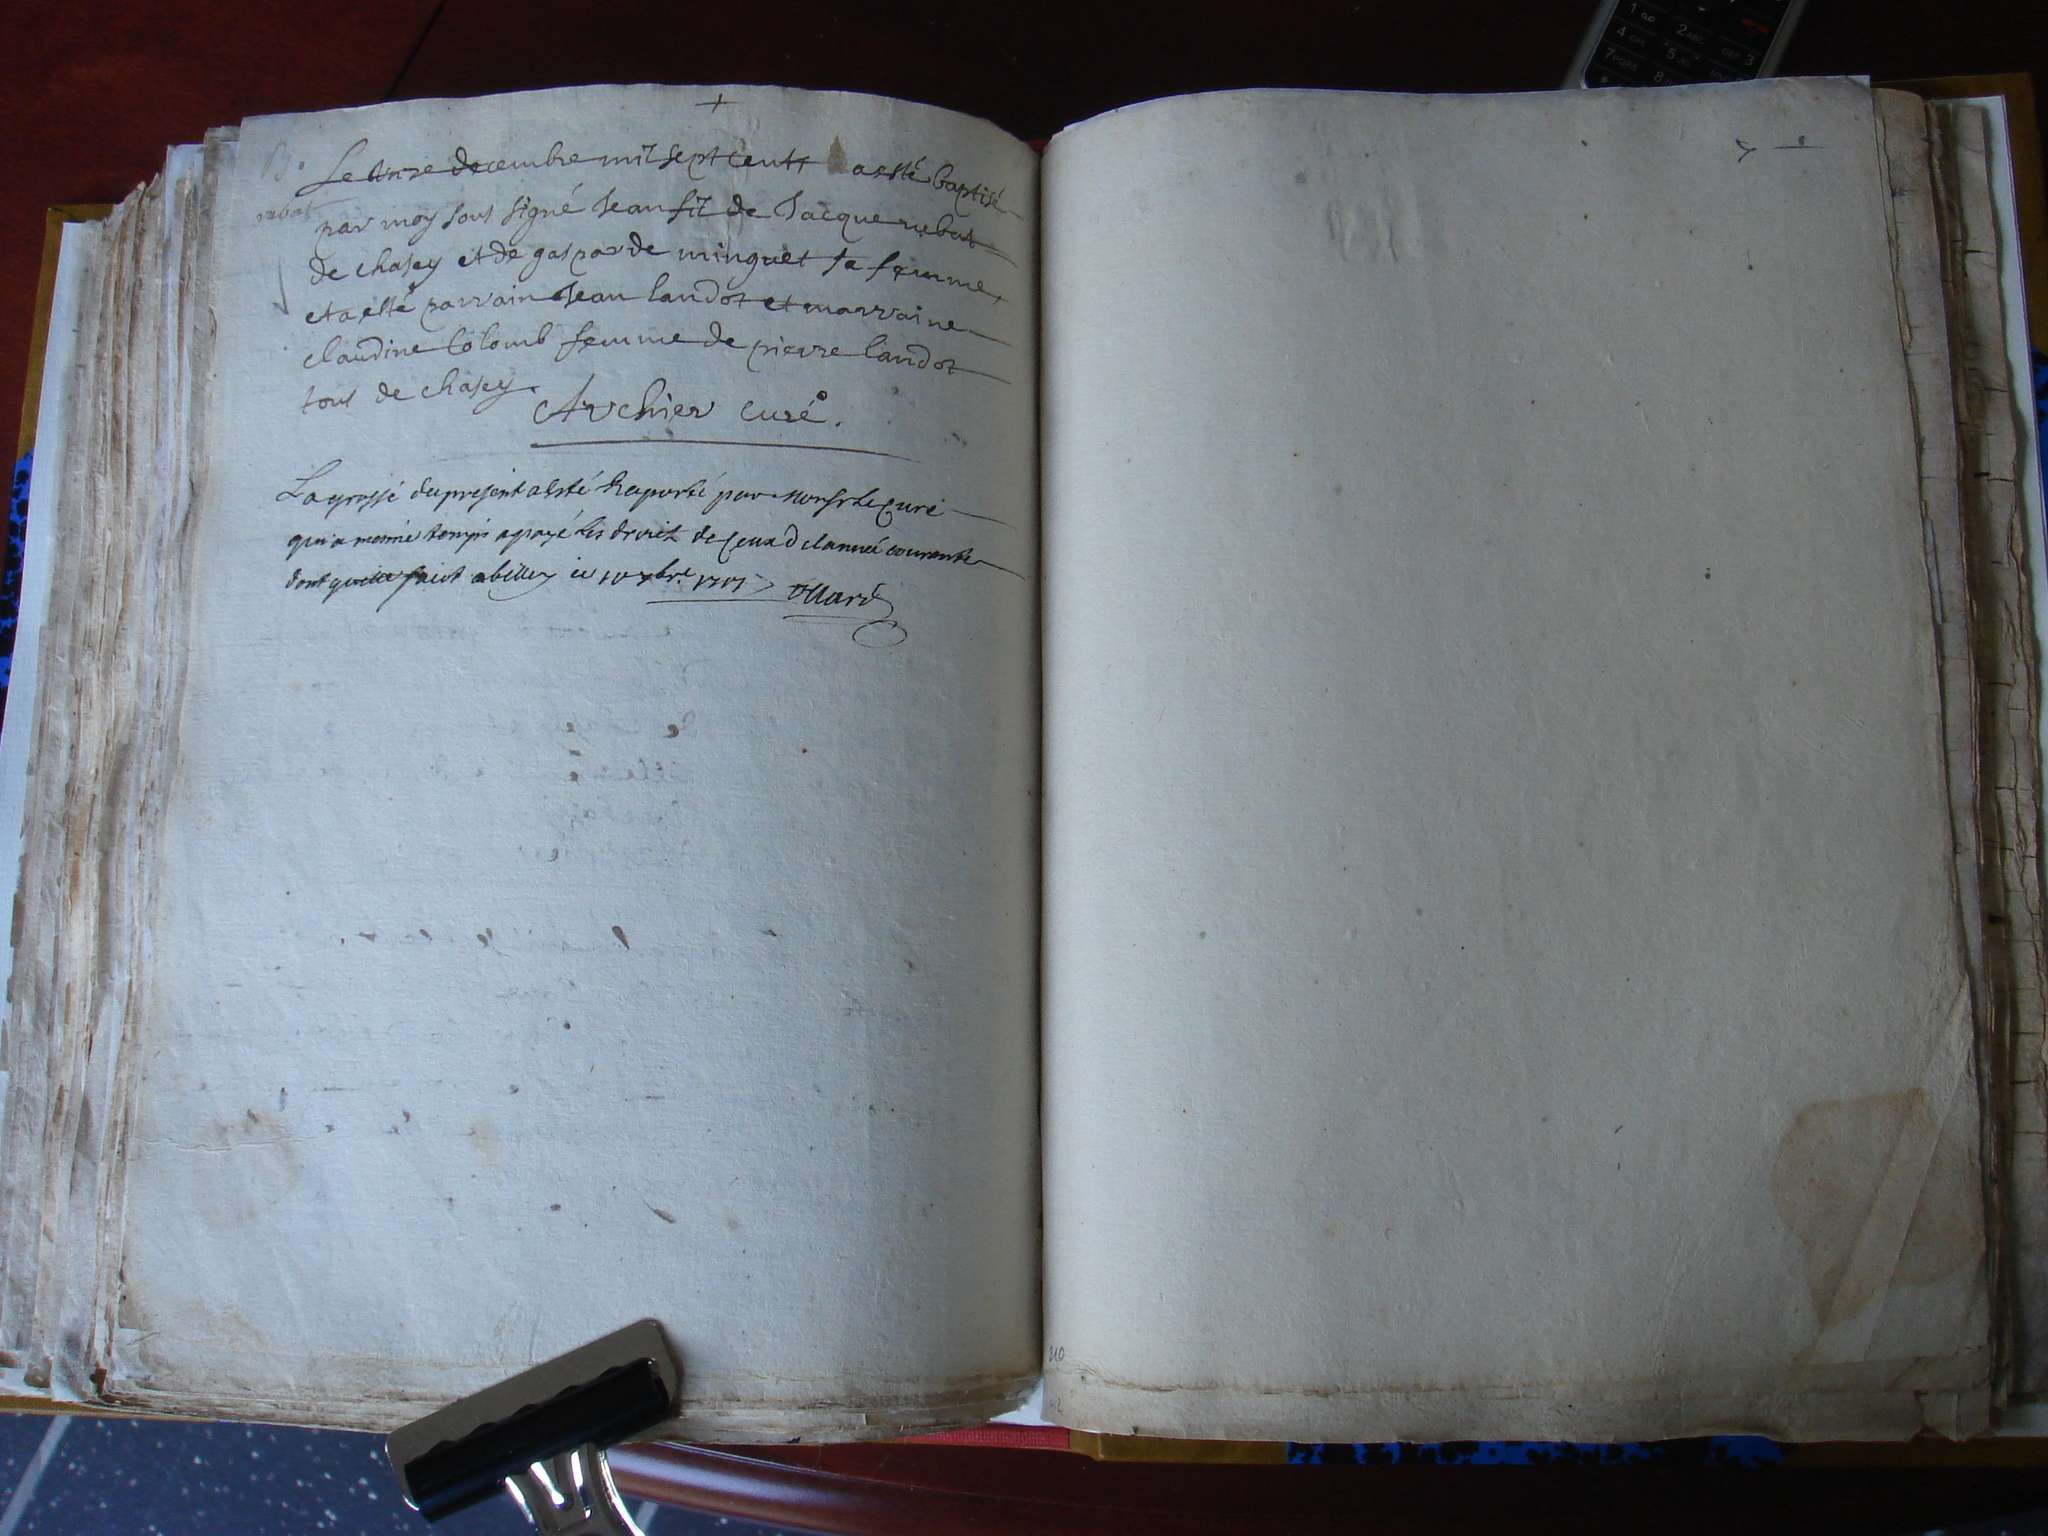 +
B.
rabat
Le onze decembre mil sept cents a esté baptisé
par moy sous signé Jean fil de Jacque rubat
de chasey et de gasparde minguet sa femme,
et a esté parrain Jean landot et marraine
claudine Colomb femme de pierre landot
tous de chasey.
Archier curé.
La grosse du present a esté Raporté par Monsr Le Curé
qui a mesme temps a payé Les droict de ceux d l'année courante
dont faict a billey ce 10 xbre 1701
210
1
2
4
5
3
7
8
*